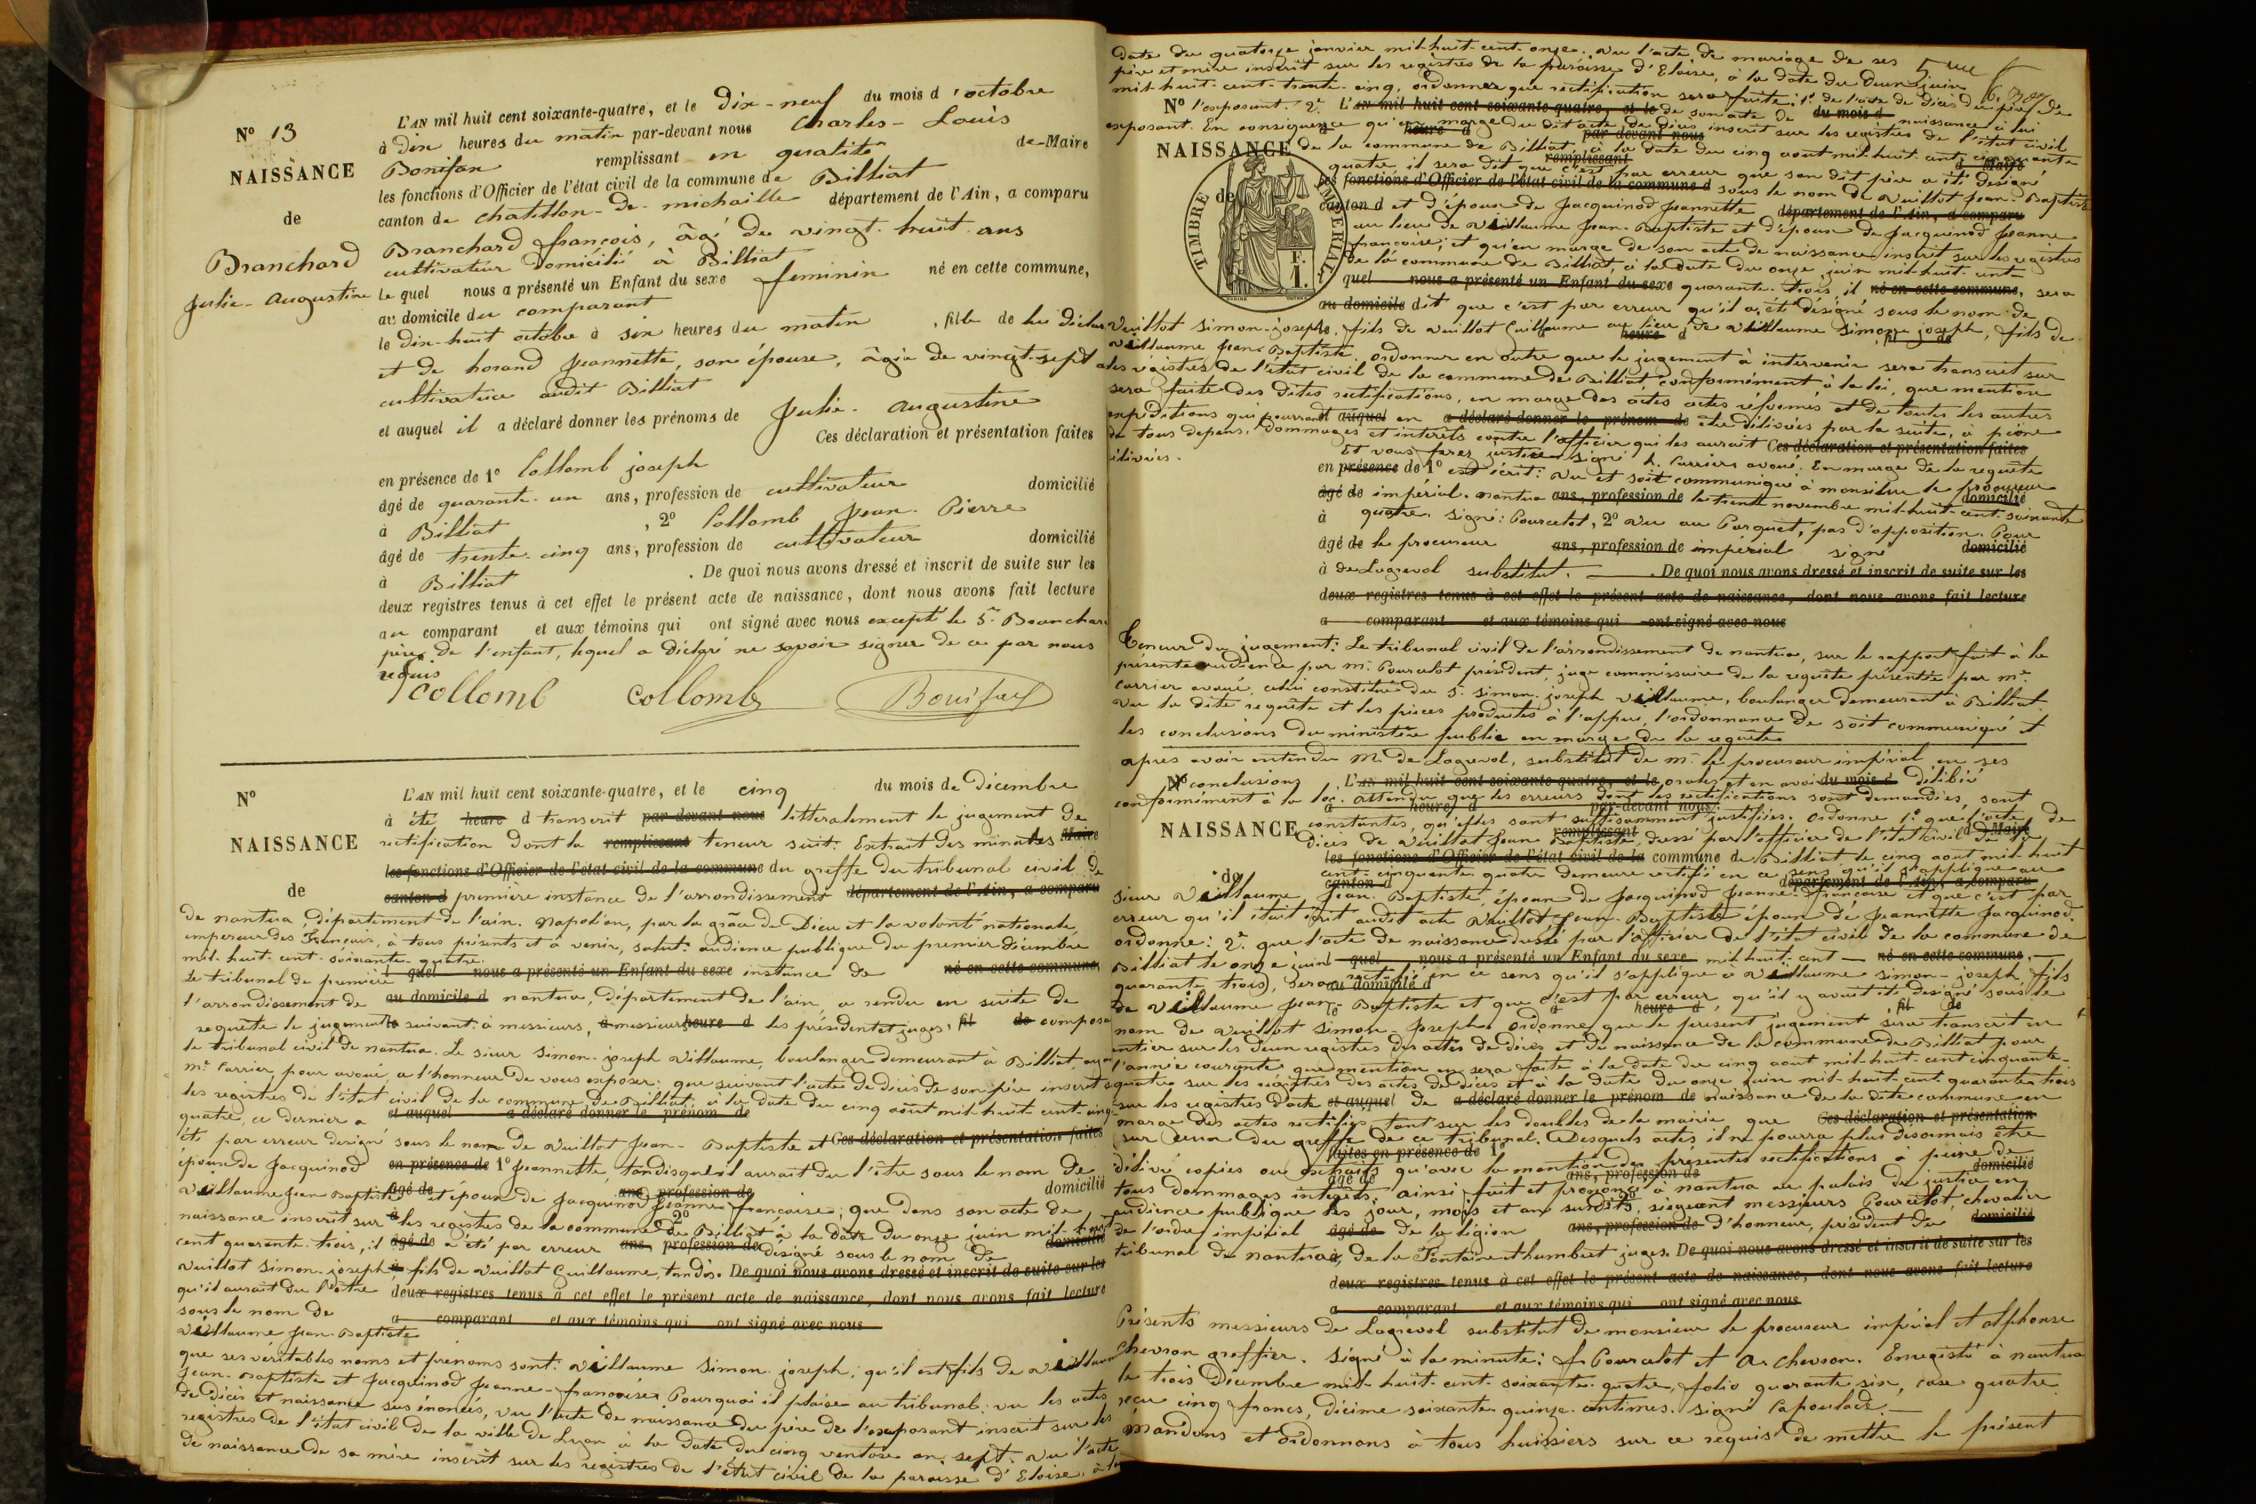 N° 13
NAISSANCE
de
Branchard
Julie-Augustine
L'AN mil huit cent soixante-quatre, et le dix-neuf du mois d'octobre
à dix heures du matin par-devant nous Charles-Louis
Bonifax remplissant en qualité de Maire
les fonctions d'Officier de l'état civil de la commune de Billiat
canton de chatillon-de-michaille département de l'Ain, a comparu
Branchard françois, âgé de vingt-huit ans
cultivateur domicilié à Billiat
le quel nous a présenté un Enfant du sexe feminin né en cette commune,
au domicile du comparant
le dix-huit octobre à six heures du matin, fille de lui déclar
et de horand Jeannette, son épouse, âgée de vingt-sept a
cultivatrice audit Billiat
et auquel il a déclaré donner les prénoms de Julie-Augustine
Ces déclaration et présentation faites
en présence de 1° Collomb joseph
âgé de quarante-un ans, profession de cultivateur domicilié
à Billiat, 2° Collomb Jean-Pierre
âgé de trente-cinq ans, profession de cultivateur domicilié
à Billiat. De quoi nous avons dressé et inscrit de suite sur les
deux registres tenus à cet effet le présent acte de naissance, dont nous avons fait lecture
au comparant et aux témoins qui ont signé avec nous excepté le Sr Branchar
père de l'enfant, lequel a déclaré ne savoir signer de ce par nous
requis
Collomb Collomb Bonifax
N°
NAISSANCE
de
L'AN mil huit cent soixante-quatre, et le cinq du mois de Décembre
à été heure d transcrit par-devant nous litteralement le jugement de
rectification dont la remplissant teneur suit: Extrait des minutes Maire
les fonctions d'Officier de l'état civil de la commune du greffe du tribunal civil de
canton d première instance de l'arrondissement département de l'Ain, a comparu
de nantua, département de l'ain. Napoléon, par la grâce de Dieu et la volonté nationale,
empereur des Français, à tous présents et à venir, salut: audience publique du premier décembre
mil-huit-cent-soixante-quatre.
le tribunal de première quel nous a présenté un Enfant du sexe instance de né en cette commune,
l'arrondissement de au domicile d nantua, département de l'ain, a rendu en suite de
requête le jugement le suivant: à messieurs, à messieurs heure d les président et juges, fil de compose
le tribunal civil de nantua. Le sieur Simon-joseph Villaume, boulanger demeurant à Billiat, aya
me Carrier, pour avoué, a l'honneur de vous exposer: que suivant l'acte de décès de son père inscrit s
les registres de l'état civil de la commune de Billiat, à la date du cinq août mil-huit-cent-cinq-
quatre, ce dernier a et auquel a déclaré donner le prénom de
été par erreur designé sous le nom de Vuillot Jean-Baptiste et Ces déclaration et présentation faites
époux de Jacquinod en présence de 1° Jeannette, tandisqu'il aurait du l'être sous le nom de
Villaume Jean Baptiste âgé de et époux de Jacquinod ans, profession de Jeanne françoise; que dans son acte de domicilié
naissance inscrit sur à les registres de la commune de 2° Billiat à la date du onze juin mil-huit
cent quarante-trois, il âgé de a été par erreur ans, profession de designé sous le nom de domicilié
Vuillot Simon-joseph, à fils de Vuillot Guillaume, tandis. De quoi nous avons dressé et inscrit de suite sur les
qu'il aurait du l'être deux registres tenus à cet effet le présent acte de naissance, dont nous avons fait lecture
sous le nom de a comparant et aux témoins qui ont signé avec nous
Villaume Jean-Baptiste
que ses véritables noms et prenoms sont: Villaume Simon-joseph; qu'il est fils de Villaum
Jean-Baptiste et Jacquinod Jeanne-françoise. Pourquoi il plaise au tribunal: vu les actes
de décès et naissance sus énoncés, vu l'acte de naissance du père de l'exposant inscrit sur les
registres de l'état civil de la ville de Lyon à la date du cinq ventose an sept. Vu l'acte
de naissance de sa mère inscrit sur les registres de l'état civil de la paroisse d'Eloise, à la
date du quatorze janvier mil-huit-cent-onze. vu l'acte de mariage de ses
père et mère inscrit sur les registres de la paroisse d'Eloise, à la date du deux juin
mil-huit-cent-trente-cinq, ordonner que rectification sera faite: 1° de l'acte de décès du père de
5me
N° l'exposant. 2° L'AN mil huit cent soixante-quatre, et le de son acte de du mois d naissance à lui
exposant. En conséquence qu'en heure d marge du dit acte de décès par devant nous inscrit sur les registres de l'état civil
NAISSANCE de la commune de Billiat, à la date du cinq aout mil-huit-cent-cinquante
quatre il sera dit que remplissant c'est par erreur que son dit père a été designé de Maire
les fonctions d'Officier de l'état civil de la commune d sous le nom de Vuillot Jean-Baptiste
de
canton d et d'époux de Jacquinod Jeannette département de l'Ain, a comparu
au lieu de Villaume Jean-Baptiste et d'époux de Jacquinod Jeanne
françoise; et qu'en marge de son acte de naissance inscrit sur les registres
de la commune de Billiat, à la date du onze juin mil-huit-cent-
quel nous a présenté un Enfant du sexe quarante-trois, il né en cette commune, sera
au domicile dit que c'est par erreur qu'il a été désigné sous le nom de
TIMBRE IMPERIAL
F. 1.
Vuillot Simon-joseph, fils de Vuillot Guillaume au lieu heure d de Villaume Simon joseph, fil de fils de
Villaume Jean-Baptiste. Ordonner en outre que le jugement à intervenir sera transcrit sur
les régistres de l'état civil de la commune de Billiat conformément à la loi, que mention
sera faite des dites rectifications, en marge des actes actes réformés et de toutes les autres
expéditions qui pourront et auquel en a déclaré donner le prénom de être délivrées par la suite, à peine
de tous depens, dommages et intérêts contre l'officier qui les aurait Ces déclaration et présentation faites
délivrées. Et vous ferez justice signé h. Carrier avoué. En marge de la requête
en présence de 1° est écrit: Vu et soit communiqué à monsieur le procureur
âgé de impérial. nantua ans, profession de le trente novembre mil-huit-cent-soixante domicilié
à quatre. signé: Pourcelot, 2° Vu au Parquet, pas d'opposition. Pour
âgé de le procureur ans, profession de impérial signé domicilié
à de Lagrevol substitut. De quoi nous avons dressé et inscrit de suite sur les
deux registres tenus à cet effet le présent acte de naissance, dont nous avons fait lecture
a comparant et aux témoins qui ont signé avec nous
Teneur du jugement: Le tribunal civil de l'arrondissement de nantua, sur le rapport fait à la
présente audience par mr. Pourcelot président, juge commissaire de la requête présentée par me.
Carrier avoué, celui constitué du Sr. Simon-joseph Villaume, boulanger demeurant à Billiat
vu la dite requête et les pièces produites à l'appui, l'ordonnance de soit communiqué et
les conclusions du ministère public en marge de la requête
après avoir entendu Mr. de Lagrevol, substitut de mr. le procureur impérial en ses
N° conclusions L'AN mil huit cent soixante-quatre, et le orales et en avoir du mois d délibéré
conformément à la loi. à heure d attendu que les erreurs dont les rectifications par-devant nous sont demandées, sont
NAISSANCE constantes, qu'elles sont suffisamment justifiées. Ordonne 1° que l'acte de
décès de Vuillot Jean remplissant Baptiste, dressé par l'officier de l'état civil de la de Maire
les fonctions d'Officier de l'état civil de la commune de Billiat le cinq aout mil-huit
cent-cinquante-quatre demeure rectifié en ce sens qu'il s'applique au
de canton d département de l'Ain, a comparu
sieur Villaume Jean-Baptiste, époux de Jacquinod Jeanne-françoise et que c'est par
erreur qu'il était écrit audit acte Vuillot Jean-Baptiste époux de Jeannette Jacquinod.
ordonne: 2° que l'acte de naissance dressé par l'officier de l'état civil de la commune de
Billiat le onze juin quel nous a présenté un Enfant du sexe mil-huit-cent né en cette commune,
quarante trois, sera au domicile d rectifié en ce sens qu'il s'applique à Villaume Simon-joseph fils
de Villaume Jean-le Baptiste et que à c'est par erreur heure d, qu'il y avait été designé sous le fil de
nom de Vuillot Simon-Joseph. Ordonne que le present jugement sera transcrit en
entier sur les deux registres des actes de décès et de naissance de la commune de Billiat pour
l'année courante que mention en sera faite à la date du cinq aout mil-huit-cent-cinquante-
quatre sur les registres des actes de décès et à la date du onze juin mil-huit-cent-quarante-trois
sur les registres d'acte et auquel de a déclaré donner le prénom de naissance de la dite commune en
marge des actes rectifiés tant sur les doubles de la mairie que Ces déclaration et présentation
sur ceux du greffe de ce tribunal. Desquels actes il ne pourra plus desormais être
faites en présence de 1°
délivré copies ou extraits qu'avec la mention des présentes rectifications à peine de
âgé de ans, profession de domicilié
tous dommages intérêts. ainsi fait et prononcé à nantua au palais de justice en
audience publique les jour, mois et an susdits, siegeant messieurs Pourcelot, chevalier
de l'ordre impérial âgé de de la légion ans, profession de d'honneur, président du domicilié
tribunal de nantua, à de la et humbert juges. De quoi nous avons dressé et inscrit de suite sur les
deux registres tenus à cet effet le présent acte de naissance, dont nous avons fait lecture
a comparant et aux témoins qui ont signé avec nous
Présents messieurs de Lagrevol substitut de monsieur le procureur impérial et alphonse
Chevron greffier. Signé à la minute: f. Pourcelot et A. Chevron. Enregistré à nantua
le trois décembre mil-huit-cent-soixante-quatre, folio quarante-six, case quatre
reçu cinq francs, décime soixante-quinze centimes. signé
mandons et ordonnons à tous huissiers sur ce requis de mettre le présent